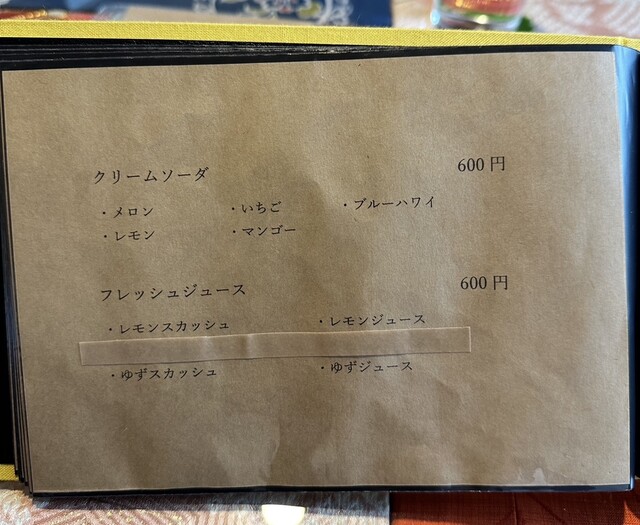 クリームソーダ 600 円
・メロン ・いちご ・ブルーハワイ
・レモン ・マンゴー
フレッシュジュース 600 円
・レモンスカッシュ ・レモンジュース
・ゆずスカッシュ ・ゆずジュース